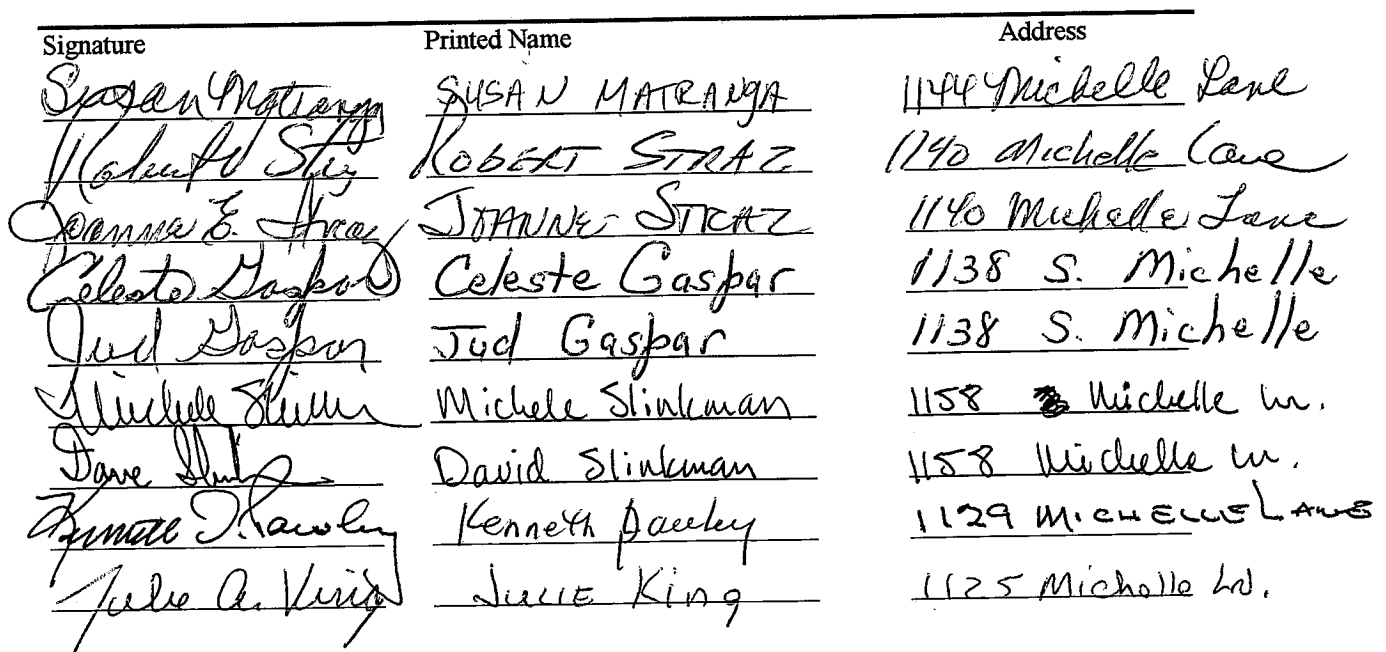 Signature Printed Name Address
Susan Matranga SUSAN MATRANGA 1144 Michelle Lane
Robert Straz ROBERT STRAZ 1140 Michelle Lane
Joanne E. Straz JOANNE STRAZ 1140 Michelle Lane
Celeste Gaspar Celeste Gaspar 1138 S. Michelle
Jud Gaspar Jud Gaspar 1138 S. Michelle
Michele Slinkman Michele Slinkman 1158 Michelle Ln.
Dave Slinkman David Slinkman 1158 Michelle Ln.
Kenneth Kenneth Pawley 1129 MICHELLE LANE
Julie A. King JULIE King 1125 Michelle Ln.